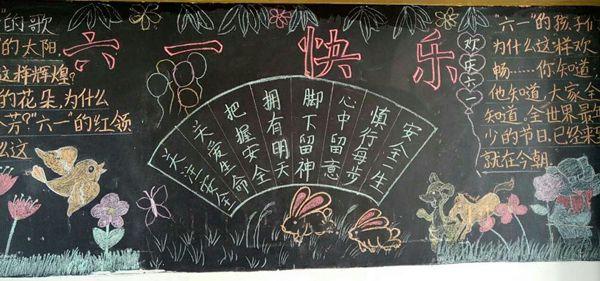 "的歌
的太阳
这样辉煌?
的花朵,为什么
芳?"六一"的红领
么这
六一快乐
关注安全
关爱生命
把握安全
拥有明天
脚下留神
心中留意
慎行每步
安全一生
欢庆六一
"六一"的孩子们
为什么这样欢
畅……你知道,
他知道,大家全
知道。全世界最年
少的节日,已经来到
就在今朝